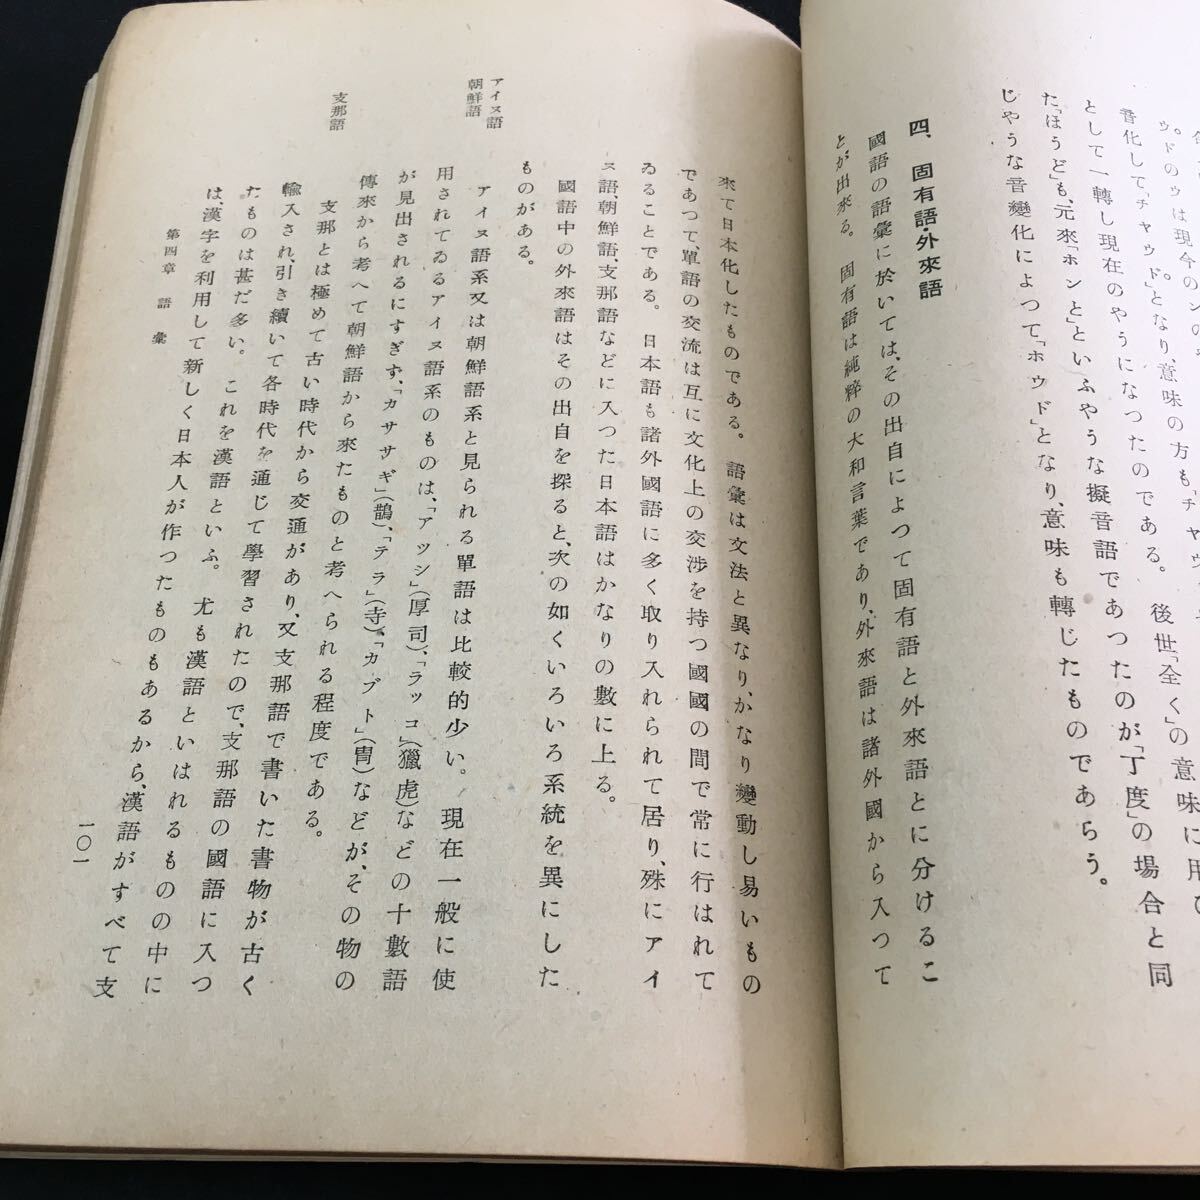 ウドのウは現今のンの
音化して「チャウド。」となり、意味の方も「チャウ
として一轉し現在のやうになつたのである。後世「全く」の意味に用ひ
た「ほうど」も、元來「ホンと」といふやうな擬音語であつたのが「丁度」の場合と同
じやうな音變化によつて「ホウド」となり、意味も轉じたものであらう。
四、固有語・外來語
國語の語彙に於いては、その出自によつて固有語と外來語とに分けるこ
とが出來る。固有語は純粹の大和言葉であり、外來語は諸外國から入つて
來て日本化したものである。語彙は文法と異なり、かなり變動し易いもの
であつて、單語の交流は互に文化上の交渉を持つ國國の間で常に行はれて
ゐることである。日本語も諸外國語に多く取り入れられて居り、殊にアイ
ヌ語、朝鮮語、支那語などに入つた日本語はかなりの數に上る。
國語中の外來語はその出自を探ると、次の如くいろいろ系統を異にした
ものがある。
アイヌ語
朝鮮語
アイヌ語系又は朝鮮語系と見られる單語は比較的少い。現在一般に使
用されてゐるアイヌ語系のものは、「アツシ」(厚司)、「ラッコ」(獵虎)などの十數語
が見出されるにすぎず、「カササギ」(鵲)、「テラ」(寺)、「カブト」(冑)などが、その物の
傳來から考へて朝鮮語から來たものと考へられる程度である。
支那語
支那とは極めて古い時代から交通があり、又支那語で書いた書物が古く
輸入され、引き續いて各時代を通じて學習されたので、支那語の國語に入つ
たものは甚だ多い。これを漢語といふ。尤も漢語といはれるものの中に
は、漢字を利用して新しく日本人が作つたものもあるから、漢語がすべて支
第四章 語彙
一〇一